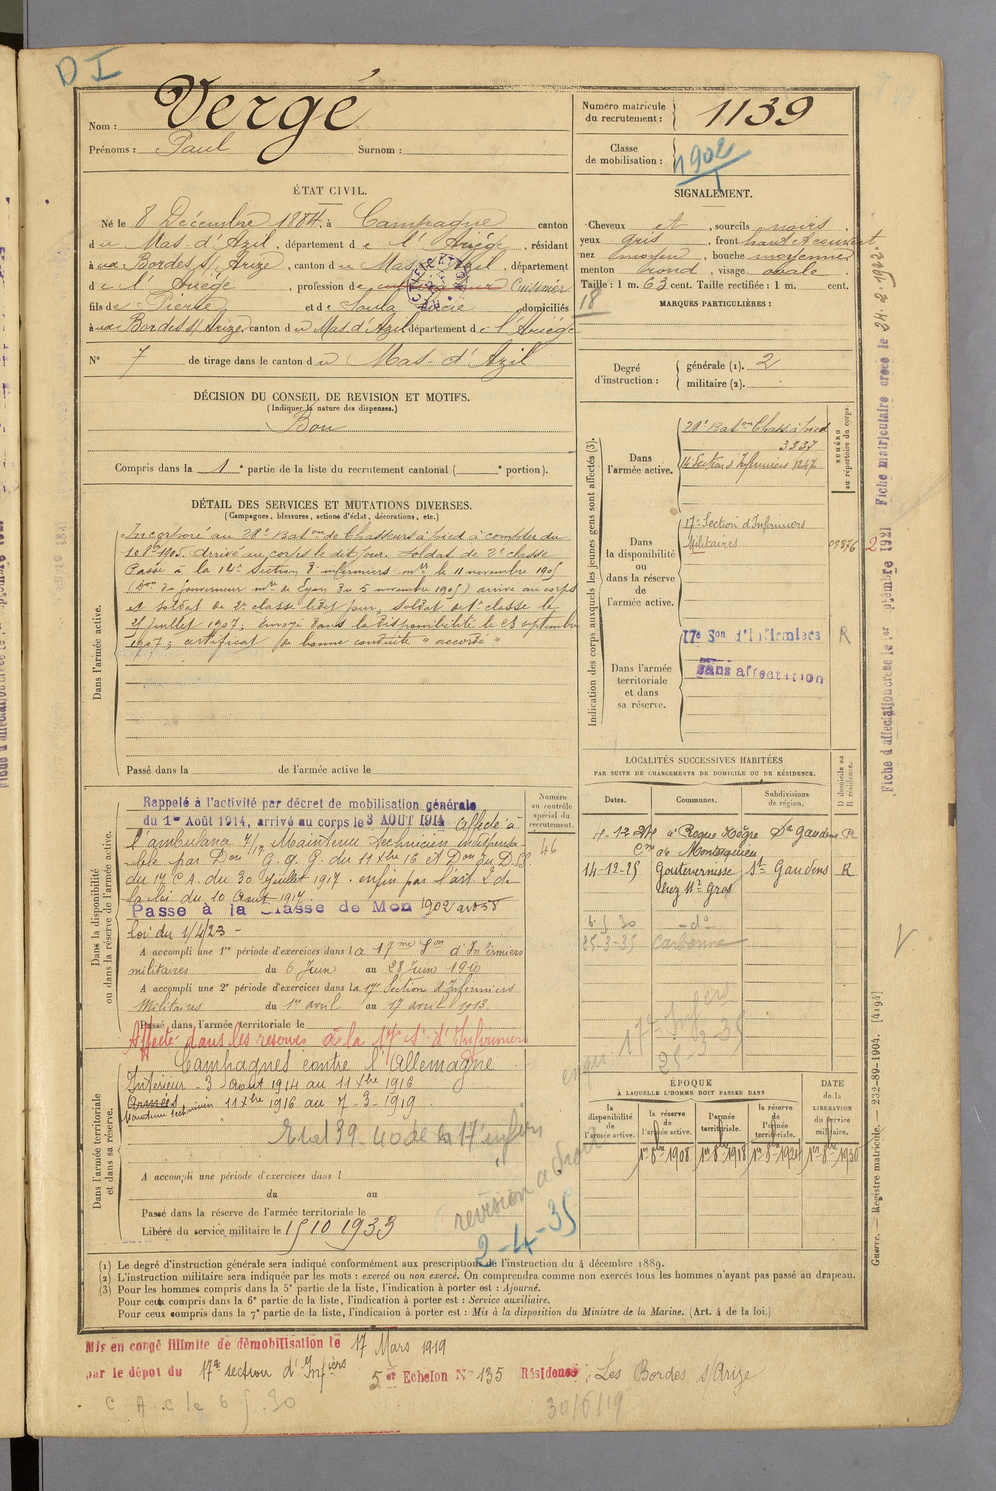 D I
Nom : Vergé
Prénoms : Paul Surnom :
Numéro matricule du recrutement : 1139
Classe de mobilisation : 1902
ÉTAT CIVIL.
Né le 8 Décembre 1884, à Campagne canton
du Mas-d'Azil, département de l'Ariège, résidant
à aux Bordes s/ Arize, canton du Mas d'Azil, département
de l'Ariège, profession de Cuisinier
fils de Pierre et de Soula Lucie domiciliés
à aux Bordes s/ Arize, canton du Mas d'Azil département de l'Ariège
N° 7 de tirage dans le canton du Mas-d'Azil
SIGNALEMENT.
Cheveux et, sourcils noirs
yeux gris, front haut et couvert,
nez moyen, bouche moyenne
menton rond, visage ovale.
Taille : 1 m. 63 cent. Taille rectifiée : 1 m. cent.
18
MARQUES PARTICULIÈRES :
Degré d'instruction :
générale (1). 2
militaire (2).
DÉCISION DU CONSEIL DE REVISION ET MOTIFS.
(Indiquer la nature des dispenses.)
Bon
Compris dans la 1e partie de la liste du recrutement cantonal ( e portion).
DÉTAIL DES SERVICES ET MUTATIONS DIVERSES.
(Campagnes, blessures, actions d'éclat, décorations, etc.)
Dans l'armée active.
Incorporé au 28e Baton de Chasseurs à pied à compter du
10 8bre 1905. Arrivé au corps le dit jour. Soldat de 2e classe
Passé à la 14e Section d'infirmiers mres le 11 novembre 1905
(Don du Gouverneur mre de Lyon du 5 novembre 1905) arrivé au corps
et soldat de 2e classe le dit jour, Soldat de 1e classe le
21 juillet 1907; envoyé dans la disponibilité le 28 septembre
1907; certificat de bonne conduite "accordé"
Passé dans la de l'armée active le
Dans la disponibilité ou dans la réserve de l'armée active.
Numéro au contrôle spécial du recrutement.
46
Rappelé à l'activité par décret de mobilisation générale
du 1er Août 1914, arrivé au corps le 3 AOUT 1914 affecté à
l'ambulance 7/17 Maintenu Technicien indispensa-
ble par Don G. Q. G. du 11 Xbre 16 et Don du D.SS.
du 17e C.A. du 30 Juillet 1917. enfin par l'art 2 de
la loi du 10 Aout 1917
Passé à la Classe de Mon 1902 art 58
loi du 1/4/23 -
A accompli une 1re période d'exercices dans la 17me Son d'Infirmiers
militaires du 6 Juin au 28 Juin 1910
A accompli une 2e période d'exercices dans la 17e Section d'Infirmiers
Militaires du 1er avril au 17 avril 1913
Passé dans l'armée territoriale le
Affecté dans les réserves à la 17e Son d'Infirmiers
Dans l'armée territoriale et dans sa réserve.
Campagnes contre l'Allemagne
Intérieur - 3 Aout 1914 au 11 Xbre 1916
Armées
Maintenu technicien 11 Xbre 1916 au 7-3-1919
Etat 39-40 de la 17e infirs
A accompli une période d'exercices dans l
du au
Passé dans la réserve de l'armée territoriale le
Libéré du service militaire le 15 10 1933
revision a droit
2-4-35
Indication des corps auxquels les jeunes gens sont affectés (3).
NUMÉRO au répertoire du corps.
Dans l'armée active.
28e Baton Chass. à pied
3337
14 Section d'Infirmiers 1247
Dans la disponibilité ou dans la réserve de l'armée active.
17e Section d'Infirmiers
Militaires
05376
2
Dans l'armée territoriale et dans sa réserve.
17e Son d'Infirmiers R
Sans affectation
LOCALITÉS SUCCESSIVES HABITÉES
PAR SUITE DE CHANGEMENTS DE DOMICILE OU DE RÉSIDENCE.
Dates. Communes. Subdivisions de région. D domicile ou R résidence.
Cne de Montesquieu
14-12-25 Goutevernisse St Gaudens R
chez Mr Gros
6-5-30 - do
25-3-35 Carbonne
17e Infers
25-3-35
ÉPOQUE
À LAQUELLE L'HOMME DOIT PASSER DANS
DATE de la LIBÉRATION du service militaire.
la disponibilité de l'armée active.
la réserve de l'armée active.
l'armée territoriale.
la réserve de l'armée territoriale.
1er 8bre 1908 1er 8bre 1918 1er 8bre 1924 1er 8bre 1930
(1) Le degré d'instruction générale sera indiqué conformément aux prescriptions de l'instruction du 4 décembre 1889.
(2) L'instruction militaire sera indiquée par les mots : exercé ou non exercé. On comprendra comme non exercés tous les hommes n'ayant pas passé au drapeau.
(3) Pour les hommes compris dans la 5e partie de la liste, l'indication à porter est : Ajourné.
Pour ceux compris dans la 6e partie de la liste, l'indication à porter est : Service auxiliaire.
Pour ceux compris dans la 7e partie de la liste, l'indication à porter est : Mis à la disposition du Ministre de la Marine. (Art. 4 de la loi.)
Mis en congé illimité de démobilisation le 17 Mars 1919
par le dépôt du 17e section d'Infiers 5e Echelon N° 135 Résidence : Les Bordes s/Arize
C. A. c le 6 5 30
30/6/19
Fiche d'affectation créée le 1er septembre 1921 Fiche matriculaire créée le 24-2-1922
Guerre. — Registre matricule. — 232-89-1904. [4194]